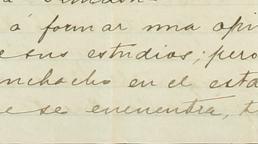 á formar una opi
sus estudios; pero
uchacho en el esta
e se encuentra, t